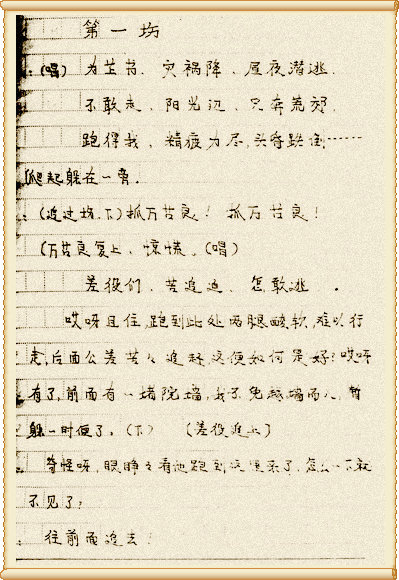 第一场
:(唱) 为芷苕、灾祸降、昼夜潜逃.
不敢走、阳光边、只奔荒郊.
跑得我、精疲力尽,头奇跌倒……
爬起躲在一旁.
:(追过场.下)抓万苦良! 抓万苦良!
(万苦良复上、惊慌。(唱)
差役们、苦追迫、怎敢逃.
哎呀且住,跑到此处两腿酸软,难以行
走,后面公差苦苦追赶,这便如何是好?哎呀
有了,前面有一堵院墙,我不免越墙而入,暂
躲一时便了。(下) (差役追上)
奇怪呀,眼睁睁看他跑到这里来了,怎么一下就
不见了?
往前面追去!